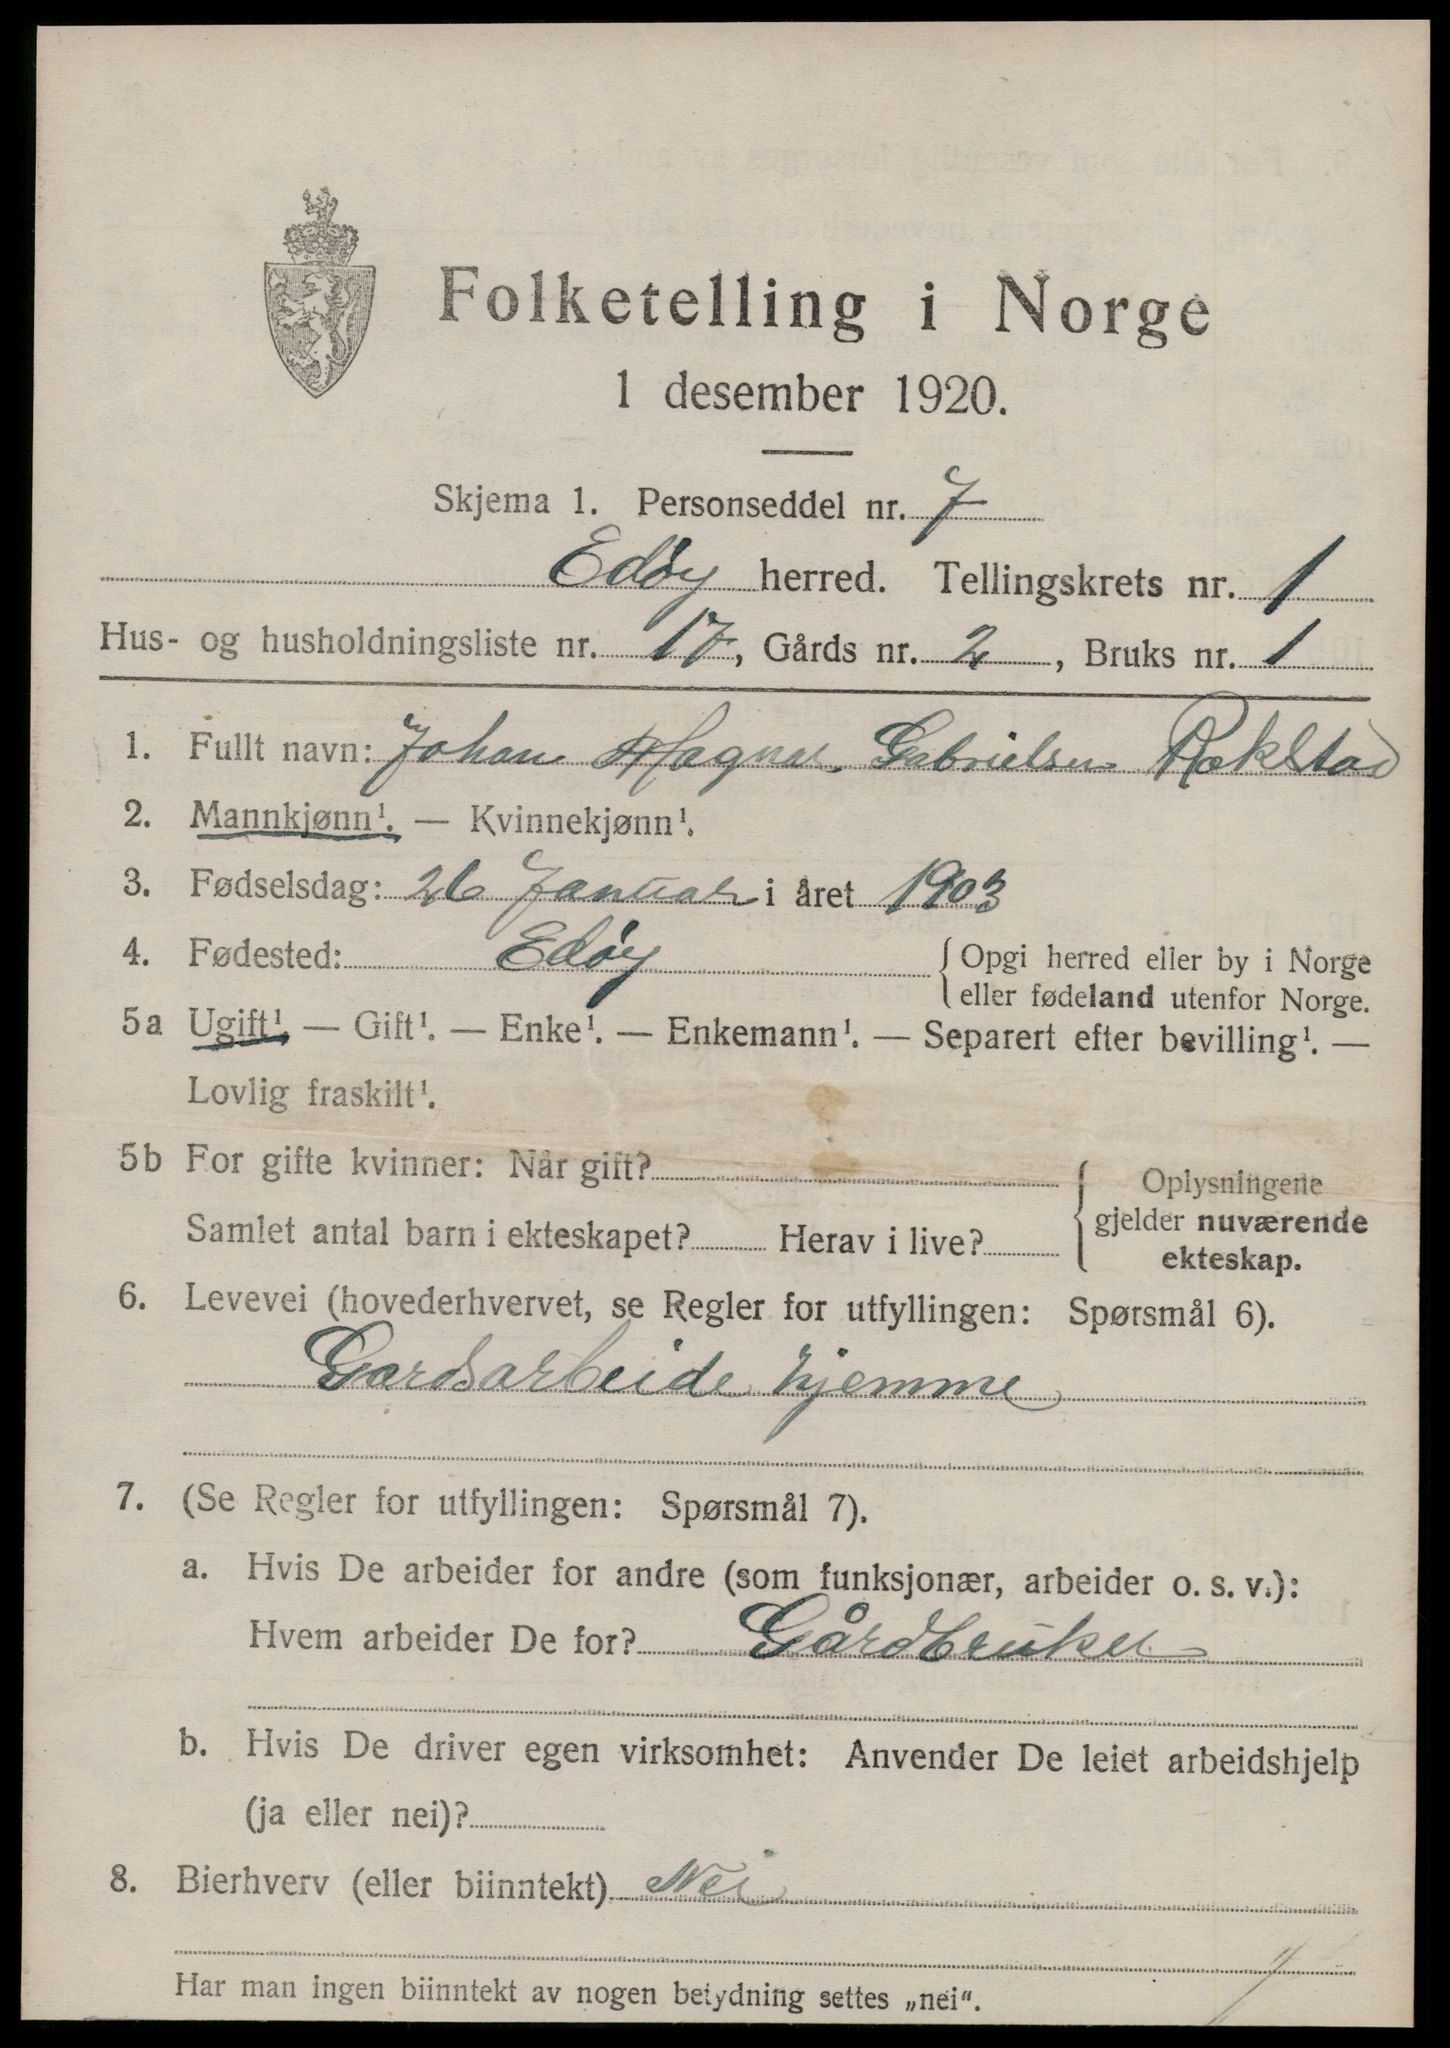 Folketelling i Norge
1 desember 1920.
Skjema 1. Personseddel nr. 7
Edøy herred. Tellingskrets nr. 1
Hus- og husholdningsliste nr. 17, Gårds nr. 2, Bruks nr. 1
1. Fullt navn: Johan Hagnar Gabrielsen Rokstad
2. Mannkjønn¹. — Kvinnekjønn¹.
3. Fødselsdag: 26 Januar i året 1903
4. Fødested: Edøy { Opgi herred eller by i Norge
eller fødeland utenfor Norge.
5a Ugift¹. — Gift¹. — Enke¹. — Enkemann¹. — Separert efter bevilling¹. —
Lovlig fraskilt¹.
5b For gifte kvinner: Når gift? { Oplysningene
Samlet antal barn i ekteskapet? Herav i live? gjelder nuværende
ekteskap.
6. Levevei (hovederhvervet, se Regler for utfyllingen: Spørsmål 6).
Gardsarbeide hjemme
7. (Se Regler for utfyllingen: Spørsmål 7).
a. Hvis De arbeider for andre (som funksjonær, arbeider o. s. v.):
Hvem arbeider De for? Gårdbruker
b. Hvis De driver egen virksomhet: Anvender De leiet arbeidshjelp
(ja eller nei)?
8. Bierhverv (eller biinntekt) Nei
Har man ingen biinntekt av nogen betydning settes „nei“.